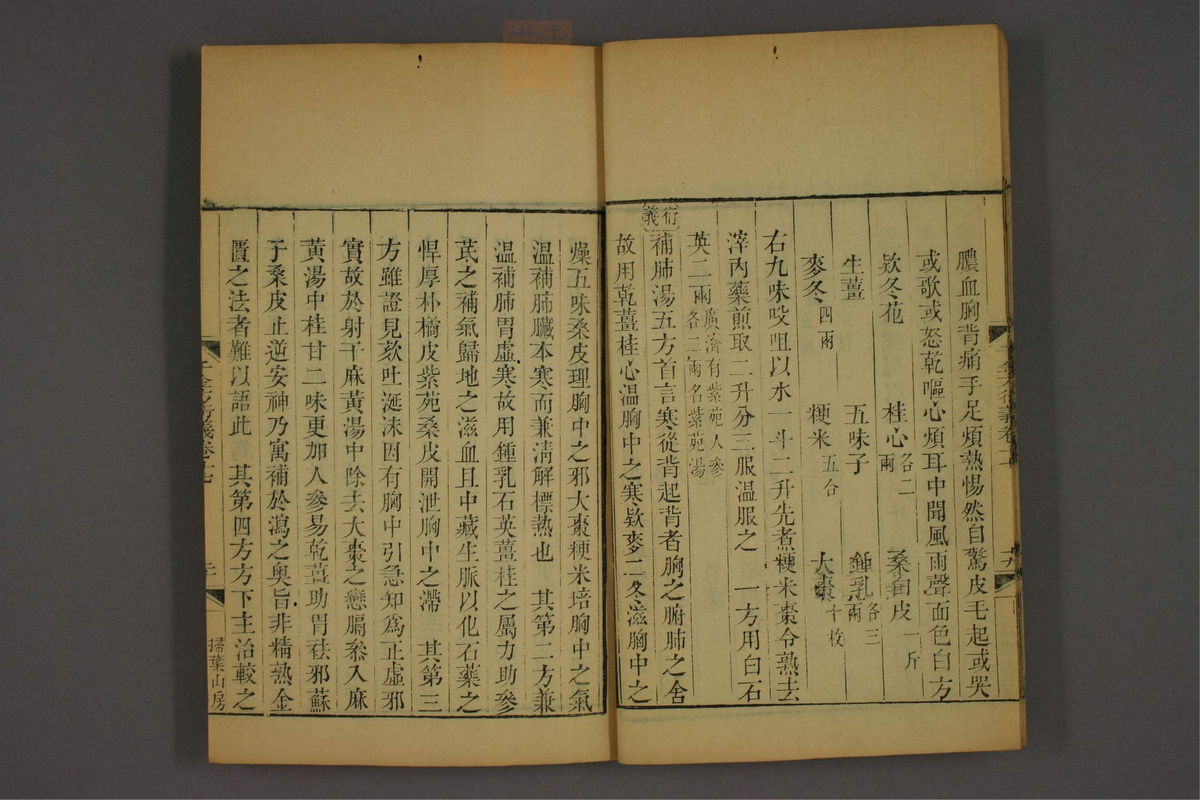 膿血胸背痛手足煩熱惕然自驚皮毛起或哭
或歌或怒乾嘔心煩耳中聞風雨聲面色白方
欵冬花 桂心各二兩 桑白皮一斤
生薑 五味子 鍾乳各三兩
麥冬四兩 粳米五合 大棗十枚
右九味㕮咀以水一斗二升先煮粳米棗令熟去
滓內藥煎取二升分三服溫服之 一方用白石
英二兩廣濟有紫苑人參各二兩名紫苑湯
衍義補肺湯五方首言寒從背起背者胸之腑肺之舍
故用乾薑桂心溫胸中之寒欵麥二冬滋胸中之
燥五味桑皮理胸中之邪大棗粳米培胸中之氣
溫補肺臟本寒而兼淸解標熱也 其第二方兼
溫補肺胃虛寒故用鍾乳石英薑桂之屬力助參
芪之補氣歸地之滋血且中藏生脈以化石藥之
悍厚朴橘皮紫苑桑皮開泄胸中之滯 其第三
方雖證見欬吐涎沫因有胸中引急知爲正虛邪
實故於射干麻黃湯中除去大棗之戀膈叅入麻
黃湯中桂甘二味更加人參易乾薑助胃祛邪蘇
子桑皮止逆安神乃寓補於瀉之奧旨非精熟金
匱之法者難以語此 其第四方方下主治較之
千金方衍義卷十七
二十
掃葉山房